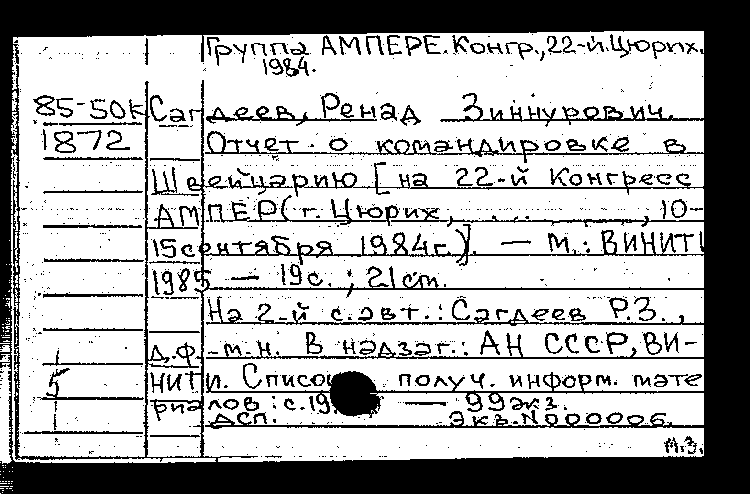 Группа АМПЕРЕ. Конгр., 22-й. Цюрих.
1984.
85-50К Сагдеев, Ренад Зиннурович.
1872 Отчет о командировке в
Швейцарию [на 22-й Конгресс
АМПЕР (г. Цюрих, ... , 10-
15 сентября 1984г.)]. — М.: ВИНИТИ
1985 — 19с. ; 21 cm.
На 2-й с. авт.: Сагдеев Р.З.,
д.ф.-м.н. В надзаг.: АН СССР, ВИ-
5 НИТИ. Список получ. информ. мате
риалов: с.19 — 99 экз.
Дсп. Экз. N 000006.
М.З.